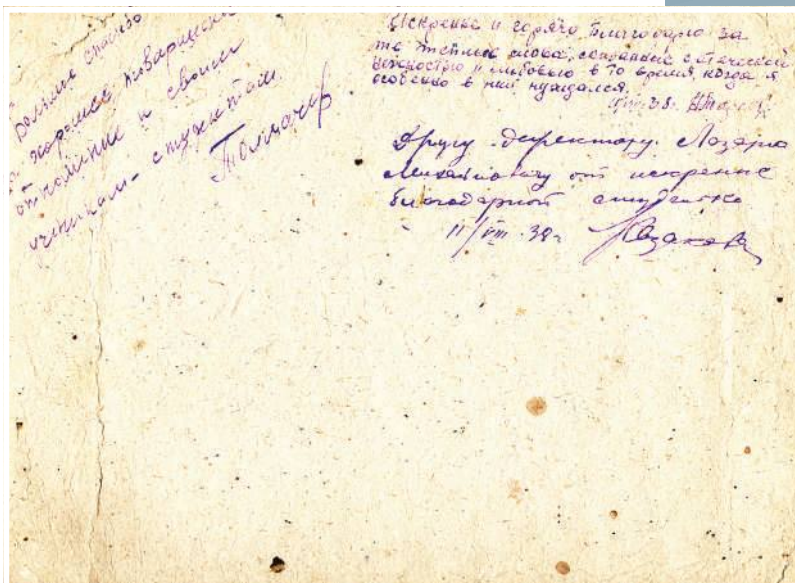 Большое спасибо
за хорошее товарищеское
отношение к своим
ученикам - студентам.
Толмачев
Искренне и горячо благодарю за
те теплые слова, сказанные с отеческой
нежностью и любовью в то время, когда я
особенно в них нуждался.
38г.
Другу-директору. Лазарю
Михайловичу от искренне
благодарной студентки
11/VIII-38г. Казакова